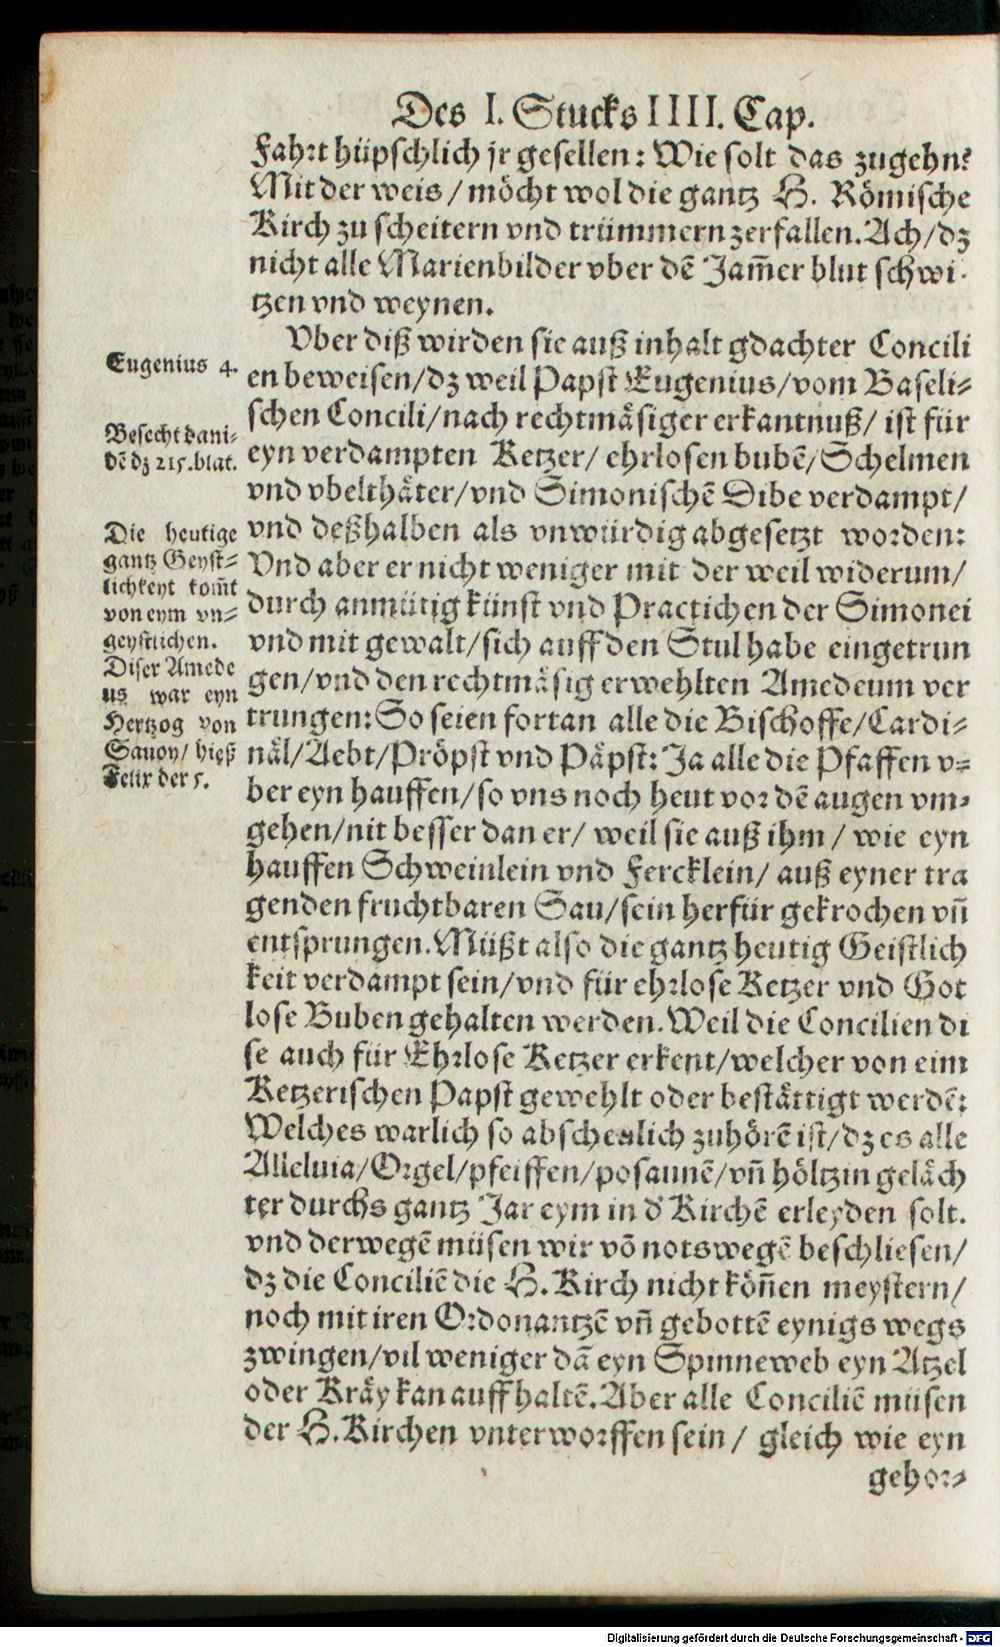 Des I. Stucks IIII. Cap.
Fahrt hüpschlich jr gesellen: Wie solt das zugehn?
Mit der weis / möcht wol die gantz H. Römische
Kirch zu scheitern vnd trümmern zerfallen. Ach / dz
nicht alle Marienbilder vber dē Jam̄er blut schwi-
tzen vnd weynen.
Vber diß wirden sie auß inhalt gdachter Concili
en beweisen / dz weil Papst Eugenius / vom Baseli-
schen Concili / nach rechtmäsiger erkantnuß / ist für
eyn verdampten Ketzer / ehrlosen bubē / Schelmen
vnd vbelthäter / vnd Simonischē Dibe verdampt /
vnd deßhalben als vnwürdig abgesetzt worden:
Vnd aber er nicht weniger mit der weil widerum /
durch anmütig künst vnd Practichen der Simonei
vnd mit gewalt / sich auff den Stul habe eingetrun
gen / vnd den rechtmäsig erwehlten Amedeum ver
trungen: So seien fortan alle die Bischoffe / Cardi-
näl / Aebt / Pröpst vnd Päpst: Ja alle die Pfaffen v-
ber eyn hauffen / so vns noch heut vor dē augen vm-
gehen / nit besser dan er / weil sie auß ihm / wie eyn
hauffen Schweinlein vnd Fercklein / auß eyner tra
genden fruchtbaren Sau / sein herfür gekrochen vn̄
entsprungen. Müßt also die gantz heutig Geistlich
keit verdampt sein / vnd für ehrlose Ketzer vnd Got
lose Buben gehalten werden. Weil die Concilien di
se auch für Ehrlose Ketzer erkent / welcher von eim
Ketzerischen Papst gewehlt oder bestättigt werdē:
Welches warlich so abscheulich zuhörē ist / dz es alle
Alleluia / Orgel / pfeiffen / posaunē / vn̄ höltzin geläch
ter durchs gantz Jar eym in d' Kirchē erleyden solt.
vnd derwegē müsen wir vō notswegē beschliesen /
dz die Conciliē die H. Kirch nicht kön̄en meystern /
noch mit iren Ordonantzē vn̄ gebottē eynigs wegs
zwingen / vil weniger dā eyn Spinneweb eyn Atzel
oder Kräy kan auffhaltē. Aber alle Conciliē müsen
der H. Kirchen vnterworffen sein / gleich wie eyn
gehor-
Eugenius 4.
Besecht dani-
dē dz 215. blat.
Die heutige
gantz Geyst-
lichkeyt kom̄t
von eym vn-
geystlichen.
Diser Amede
us war eyn
Hertzog von
Sauoy / hieß
Felix der 5.
Digitalisierung gefördert durch die Deutsche Forschungsgemeinschaft - DFG